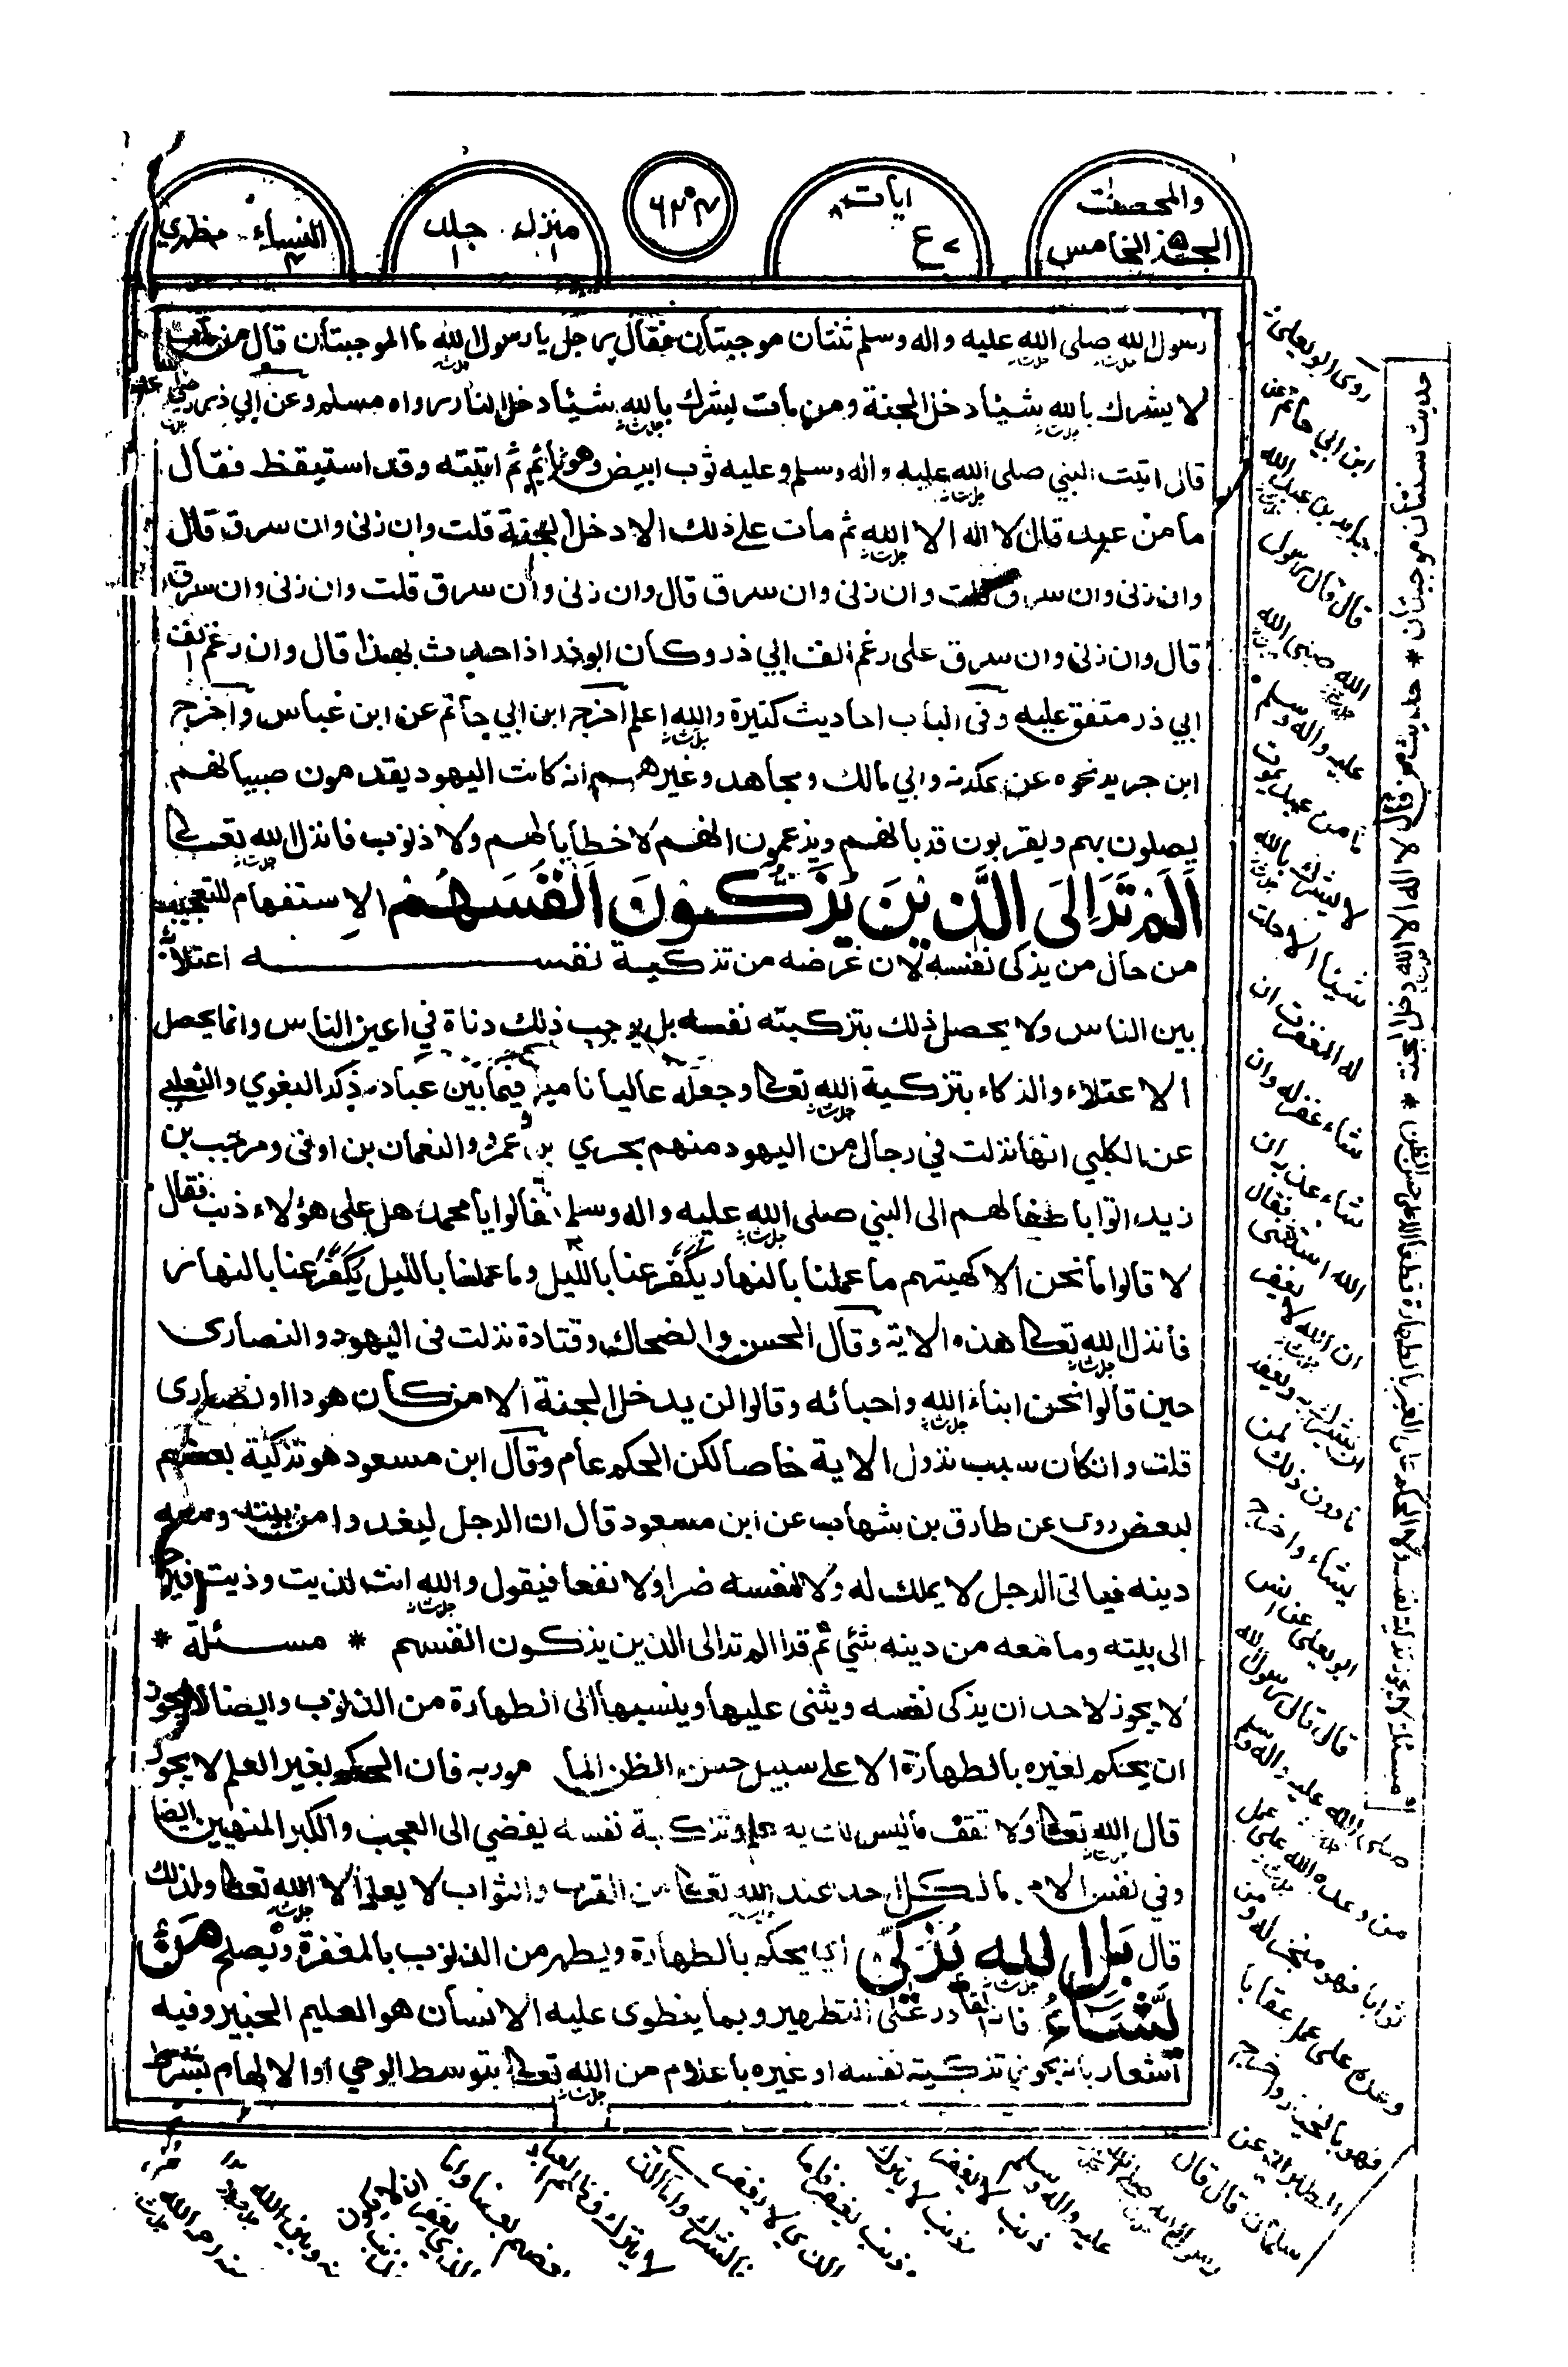 والمحصنت
الجزء الخامس
ايات
ع
منزل جلد
النساء مظهري
رسول الله صلى الله عليه واله وسلم ثنتان موجبتان فقال رجل يا رسول الله ما الموجبتان قال من مات
لا يشرك بالله شيئا دخل الجنة ومن مات يشرك بالله شيئا دخل النار رواه مسلم وعن ابي ذر رضي
قال اتيت النبي صلى الله عليه واله وسلم وعليه ثوب ابيض وهو نائم ثم اتيته وقد استيقظ فقال
ما من عبد قال لا اله الا الله ثم مات على ذلك الا دخل الجنة قلت وان زنى وان سرق قال
وان زنى وان سرق قلت وان زنى وان سرق قال وان زنى وان سرق قلت وان زنى وان سرق
قال وان زنى وان سرق على رغم انف ابي ذر وكان ابو ذر اذا حدث بهذا قال وان رغم انف
ابي ذر متفق عليه وفى الباب احاديث كثيرة والله اعلم اخرج ابن ابي حاتم عن ابن عباس واخرج
ابن جرير نحوه عن عكرمة وابي مالك ومجاهد وغيرهم انه كانت اليهود يقدمون صبيانهم
يصلون بهم ويقربون قربانهم ويزعمون انهم لا خطايا لهم ولا ذنوب فانزل الله تعالى
اَلَمْ تَرَ اِلَى الَّذِيْنَ يُزَكُّوْنَ اَنْفُسَهُمْ الاستفهام للتعجيب
من حال من يزكى نفسه لان غرضه من تزكية نفسه اعتلاؤه
بين الناس ولا يحصل ذلك بتزكيته نفسه بل يوجب ذلك دناة في اعين الناس وانما يحصل
الاعتلاء والزكاء بتزكية الله تعالى وجعله عاليا ناميا فيما بين عباده ذكر البغوي والثعلبي
عن الكلبي انها نزلت في رجال من اليهود منهم بحري بن عمرو والنعمان بن اوفى ومرحب بن
زيد اتوا باطفالهم الى النبي صلى الله عليه واله وسلم فقالوا يا محمد هل على هؤلاء ذنب فقال
لا قالوا ما نحن الا كهيئتهم ما عملنا بالنهار يُكَفَّر عنا بالليل وما عملنا بالليل يُكَفَّر عنا بالنهار
فانزل الله تعالى هذه الاية وقال الحسن والضحاك وقتادة نزلت فى اليهود والنصارى
حين قالوا نحن ابناء الله واحبائه وقالوا لن يدخل الجنة الا من كان هودا او نصارى
قلت وان كان سبب نزول الاية خاصا لكن الحكم عام وقال ابن مسعود هو تزكية بعضهم
لبعض روى عن طارق بن شهاب عن ابن مسعود قال ان الرجل ليغدوا من بيته ومعه
دينه فياتى الرجل لا يملك له ولا لنفسه ضرا ولا نفعا فيقول والله انت لذيت وذيت فيرجع
الى بيته وما معه من دينه شئ ثم قرا الم تر الى الذين يزكون انفسهم * مسئلة *
لا يجوز لاحد ان يزكى نفسه ويثنى عليها وينسبها الى الطهارة من الذنوب وايضا لا يجوز
ان يحكم لغيره بالطهارة الا على سبيل حسن الظن المامور به فان الحكم بغير العلم لا يجوز
قال الله تعالى ولا تقف ما ليس لك به علم وتزكية نفسه يفضي الى العجب والكبر المنهيين ايضا
وفي نفس الامر ما لكل احد عند الله تعالى من القرب والثواب لا يعلم الا الله تعالى ولذلك
قال بَلِ اللهُ يُزَكِّيْ اي يحكم بالطهارة ويطهر من الذنوب بالمغفرة ويصلح مَنْ
يَّشَآءُ فانه القادر على التطهير وبما ينطوى عليه الانسان هو العليم الخبير وفيه
اشعار بانه يجوز تزكية نفسه او غيره باعلام من الله تعالى بتوسط الوحي او الالهام بشرط
روى ابو يعلى
ابن ابي حاتم عن
جابر بن عبد الله
قال قال رسول
الله صلى الله
عليه واله وسلم
ما من عبد يموت
لا يشرك بالله
شيئا الا حلت
له المغفرة ان
شاء غفر له وان
شاء عذبه ان
الله استثنى فقال
ان الله لا يغفر
ان يشرك به ويغفر
ما دون ذلك لمن
يشاء واخرج
ابو يعلى عن انس
قال قال رسول الله
صلى الله عليه واله وسلم
من وعده الله على عمل
ثوابا فهو منجز له ومن
وعده على عمل عقابا
فهو بالخيار واخرج
الطبراني عن
سلمان قال قال
رسول الله صلى الله
عليه واله وسلم
ذنب لا يغفر
وذنب لا يترك
وذنب يغفر فاما
الذي لا يغفر
فالشرك واما الذي
حديث ثنتان موجبتان * حديث من قال لا اله الا الله دخل الجنة *
مسئلة لا يجوز تزكية نفسه ولا الحكم على الغير بالطهارة قطعا الا على حسن الظن